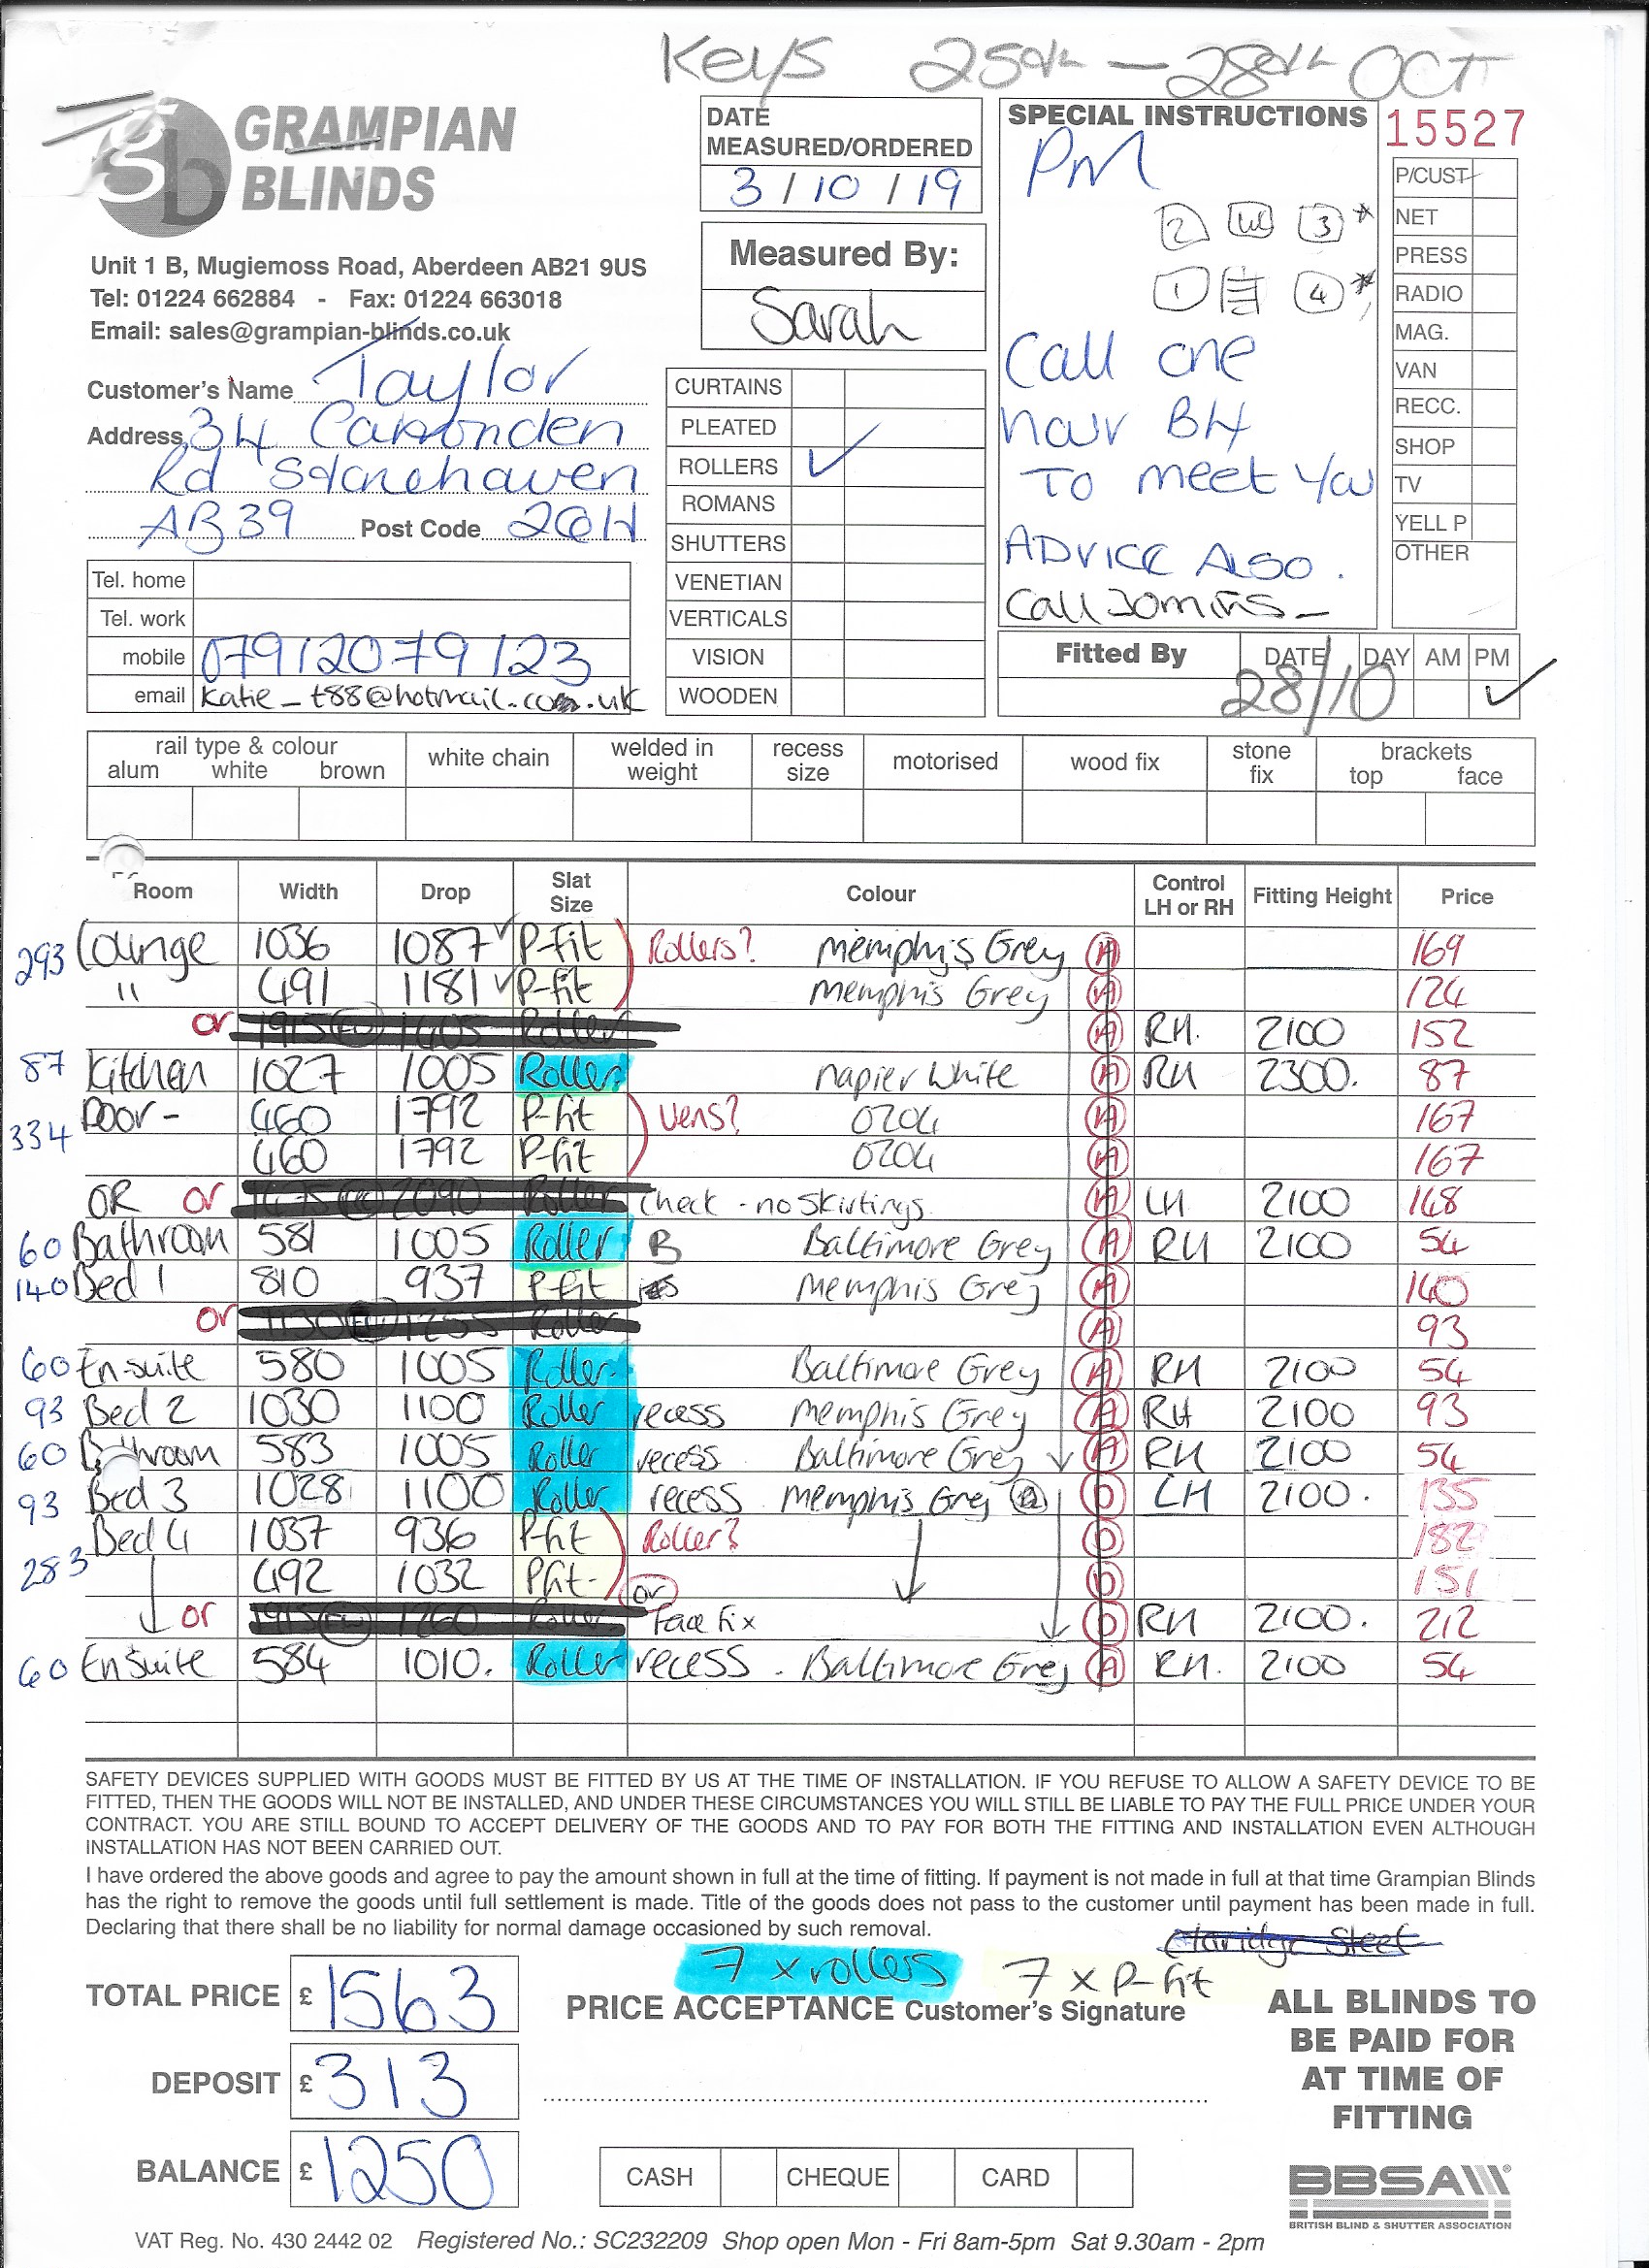 Keys 25th - 28th OCT
GRAMPIAN
BLINDS
Unit 1 B, Mugiemoss Road, Aberdeen AB21 9US
Tel: 01224 662884 - Fax: 01224 663018
Email: sales@grampian-blinds.co.uk
Customer's Name Taylor
Address 34 Carronden
Rd Stonehaven
AB39 Post Code 2QH
Tel. home
Tel. work
mobile 07912079123
email Katie_t88@hotmail.co.uk
DATE
MEASURED/ORDERED
3/10/19
Measured By:
Sarah
CURTAINS
PLEATED
ROLLERS ✓
ROMANS
SHUTTERS
VENETIAN
VERTICALS
VISION
WOODEN
SPECIAL INSTRUCTIONS
PM
2 W 3*
1 4*
Call one
hour B4
To meet you
ADVICE ALSO.
Call 30mins -
15527
P/CUST
NET
PRESS
RADIO
MAG.
VAN
RECC.
SHOP
TV
YELL P
OTHER
Fitted By DATE DAY AM PM
28/10 ✓
rail type & colour white chain welded in weight recess size motorised wood fix stone fix brackets
alum white brown top face
Room Width Drop Slat Size Colour Control LH or RH Fitting Height Price
293 Lounge 1036 1087 ✓ P-fit Rollers? Memphis Grey A 169
" 491 1181 ✓ P-fit Memphis Grey A 124
or Roller A RH. 2100 152
87 Kitchen 1027 1005 Roller napier White A RH 2300. 87
334 Door - 460 1792 P-fit Vens? 0204 A 167
460 1792 P-fit 0204 A 167
OR or 2090 Roller Check - no Skirtings A LH 2100 168
60 Bathroom 581 1005 Roller B Baltimore Grey A RH 2100 54
140 Bed 1 810 937 P-fit Memphis Grey A 140
or Roller A 93
60 En-suite 580 1005 Roller Baltimore Grey A RH 2100 54
93 Bed 2 1030 1100 Roller recess Memphis Grey A RH 2100 93
60 Bathroom 583 1005 Roller recess Baltimore Grey A RH 2100 54
93 Bed 3 1028 1100 Roller recess. Memphis Grey A D LH 2100. 135
283 Bed 4 1037 936 P-fit Roller? D 182
492 1032 Pfit- or D 151
or 1915 1260 Roller Face fix D RH 2100. 212
60 EnSuite 584 1010. Roller recess. Baltimore Grey A RH. 2100 54
SAFETY DEVICES SUPPLIED WITH GOODS MUST BE FITTED BY US AT THE TIME OF INSTALLATION. IF YOU REFUSE TO ALLOW A SAFETY DEVICE TO BE
FITTED, THEN THE GOODS WILL NOT BE INSTALLED, AND UNDER THESE CIRCUMSTANCES YOU WILL STILL BE LIABLE TO PAY THE FULL PRICE UNDER YOUR
CONTRACT. YOU ARE STILL BOUND TO ACCEPT DELIVERY OF THE GOODS AND TO PAY FOR BOTH THE FITTING AND INSTALLATION EVEN ALTHOUGH
INSTALLATION HAS NOT BEEN CARRIED OUT.
I have ordered the above goods and agree to pay the amount shown in full at the time of fitting. If payment is not made in full at that time Grampian Blinds
has the right to remove the goods until full settlement is made. Title of the goods does not pass to the customer until payment has been made in full.
Declaring that there shall be no liability for normal damage occasioned by such removal.
7 x rollers 7 x P-fit
TOTAL PRICE £ 1563
PRICE ACCEPTANCE Customer's Signature
DEPOSIT £ 313
BALANCE £ 1250
CASH CHEQUE CARD
ALL BLINDS TO
BE PAID FOR
AT TIME OF
FITTING
BBSA
BRITISH BLIND & SHUTTER ASSOCIATION
VAT Reg. No. 430 2442 02 Registered No.: SC232209 Shop open Mon - Fri 8am-5pm Sat 9.30am - 2pm